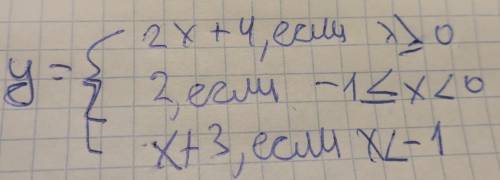 2x+4, если x≥0
y= { 2, если -1≤x<0
x+3, если x<-1